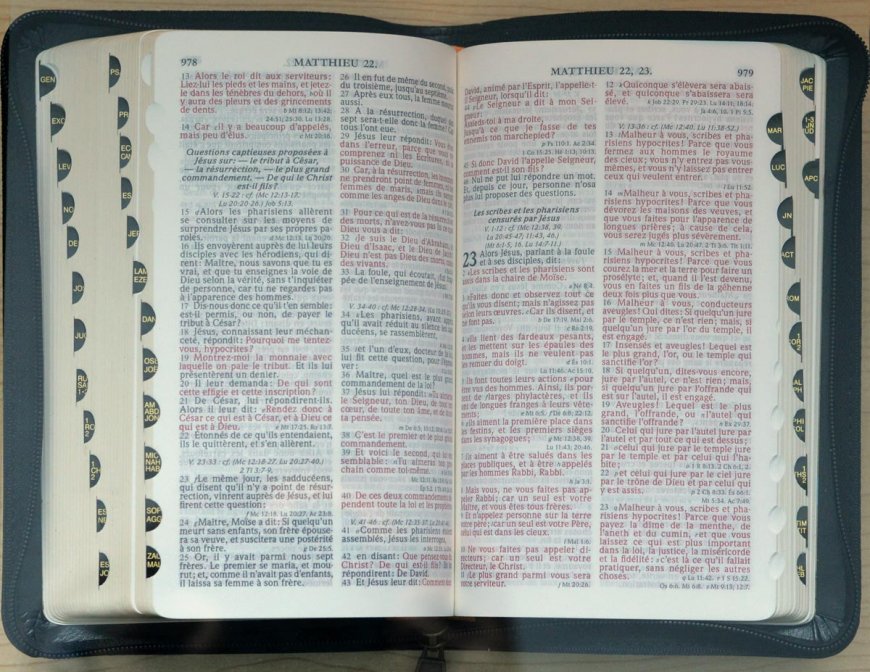 978
MATTHIEU 22.
13 Alors le roi dit aux serviteurs:
Liez-lui les pieds et les mains, et jetez-
le dans les ténèbres du dehors, où il
y aura des pleurs et des grincements
de dents.
14 Car il y a beaucoup d'appelés,
mais peu d'élus.
Questions captieuses proposées à
Jésus sur: — le tribut à César,
— la résurrection, — le plus grand
commandement. — De qui le Christ
est-il fils?
V. 15-22: cf. (Mc 12:13-17.
Lu 20:20-26.) Job 5:13.
15 Alors les pharisiens allèrent
se consulter sur les moyens de
surprendre Jésus par ses propres pa-
roles.
16 Ils envoyèrent auprès de lui leurs
disciples avec les hérodiens, qui di-
rent: Maître, nous savons que tu es
vrai, et que tu enseignes la voie de
Dieu selon la vérité, sans t'inquiéter
de personne, car tu ne regardes pas
à l'apparence des hommes.
17 Dis-nous donc ce qu'il t'en semble:
est-il permis, ou non, de payer le
tribut à César?
18 Jésus, connaissant leur méchan-
ceté, répondit: Pourquoi me tentez-
vous, hypocrites?
19 Montrez-moi la monnaie avec
laquelle on paie le tribut. Et ils lui
présentèrent un denier.
20 Il leur demanda: De qui sont
cette effigie et cette inscription?
21 De César, lui répondirent-ils.
Alors il leur dit: Rendez donc à
César ce qui est à César, et à Dieu ce
qui est à Dieu.
22 Étonnés de ce qu'ils entendaient,
ils le quittèrent, et s'en allèrent.
V. 23-33: cf. (Mc 12:18-27. Lu 20:27-40.)
23 Le même jour, les sadducéens,
qui disent qu'il n'y a point de résur-
rection, vinrent auprès de Jésus, et lui
firent cette question:
24 Maître, Moïse a dit: Si quelqu'un
meurt sans enfants, son frère épouse-
ra sa veuve, et suscitera une postérité
à son frère.
g De 25:5.
25 Or, il y avait parmi nous sept
frères. Le premier se maria, et mou-
rut; et, comme il n'avait pas d'enfants,
il laissa sa femme à son frère.
26 Il en fut de même du second, puis
du troisième, jusqu'au septième.
27 Après eux tous, la femme mourut
aussi.
28 A la résurrection, duquel des
sept sera-t-elle donc la femme? Car
tous l'ont eue.
29 Jésus leur répondit: Vous êtes
dans l'erreur, parce que vous ne
comprenez ni les Écritures, ni la
puissance de Dieu.
30 Car, à la résurrection, les hommes
ne prendront point de femmes, ni les
femmes de maris, mais ils seront
comme les anges de Dieu dans le ciel.
31 Pour ce qui est de la résurrection
des morts, n'avez-vous pas lu ce que
Dieu vous a dit:
32 Je suis le Dieu d'Abraham, le
Dieu d'Isaac, et le Dieu de Jacob?
Dieu n'est pas Dieu des morts, mais
des vivants.
33 La foule, qui écoutait, fut frap-
pée de l'enseignement de Jésus.
V. 34-40: cf. (Mc 12:28-34.
34 Les pharisiens, ayant appris
qu'il avait réduit au silence les sad-
ducéens, se rassemblèrent,
35 et l'un d'eux, docteur de la loi,
lui fit cette question, pour l'éprou-
ver:
36 Maître, quel est le plus grand
commandement de la loi?
37 Jésus lui répondit: Tu aimeras
le Seigneur, ton Dieu, de tout ton
cœur, de toute ton âme, et de toute
ta pensée.
38 C'est le premier et le plus grand
commandement.
39 Et voici le second, qui lui est
semblable: Tu aimeras ton pro-
chain comme toi-même.
40 De ces deux commandements dé-
pendent toute la loi et les prophètes.
V. 41-46: cf. (Mc 12:35-37.
41 Comme les pharisiens étaient
assemblés, Jésus les interrogea,
42 en disant: Que pensez-vous du
Christ? De qui est-il fils? Ils lui
répondirent: De David.
43 Et Jésus leur dit: Comment donc
MATTHIEU 22, 23.
979
David, animé par l'Esprit, l'appelle-t-
il Seigneur, lorsqu'il dit:
44 Le Seigneur a dit à mon Sei-
gneur:
Assieds-toi à ma droite,
Jusqu'à ce que je fasse de tes
ennemis ton marchepied?
45 Si donc David l'appelle Seigneur,
comment est-il son fils?
46 Nul ne put lui répondre un mot.
Et, depuis ce jour, personne n'osa
plus lui proposer des questions.
Les scribes et les pharisiens
censurés par Jésus
V. 1-12: cf. (Mc 12:38, 39.
Lu 20:45-47; 11:43, 46.)
(Mi 6:1-5, 16. Lu 14:7-11.)
23 Alors Jésus, parlant à la foule
et à ses disciples, dit:
2 Les scribes et les pharisiens sont
assis dans la chaire de Moïse.
3 Faites donc et observez tout ce
qu'ils vous disent; mais n'agissez pas
selon leurs œuvres. Car ils disent, et
ne font pas.
b De 17:19. Mal 2:6.
c Ro 2:19.
4 Ils lient des fardeaux pesants,
et les mettent sur les épaules des
hommes, mais ils ne veulent pas
les remuer du doigt.
Lu 11:46. Ac 15:10.
5 Ils font toutes leurs actions pour
être vus des hommes. Ainsi, ils por-
tent de larges phylactères, et ils
ont de longues franges à leurs vête-
ments;
6 ils aiment la première place dans
les festins, et les premiers sièges
dans les synagogues;
Lu 11:43; 20:46.
7 ils aiment à être salués dans les
places publiques, et à être appelés
par les hommes Rabbi, Rabbi.
h Ja 3:1.
8 Mais vous, ne vous faites pas ap-
peler Rabbi; car un seul est votre
Maître, et vous êtes tous frères.
9 Et n'appelez personne sur la terre
votre père; car un seul est votre Père,
celui qui est dans les cieux.
i Mal 1:6.
10 Ne vous faites pas appeler di-
recteurs; car un seul est votre
Directeur, le Christ.
11 Le plus grand parmi vous sera
votre serviteur.
j Mt 20:26.
12 Quiconque s'élèvera sera abais-
sé, et quiconque s'abaissera sera
élevé.
k Job 22:29. Pr 29:23. Lu 14:11; 18:14.
V. 13-36: cf. (Mc 12:40. Lu 11:38-52.)
13 Malheur à vous, scribes et pha-
risiens hypocrites! Parce que vous
fermez aux hommes le royaume
des cieux; vous n'y entrez pas vous-
mêmes, et vous n'y laissez pas entrer
ceux qui veulent entrer.
l Lu 11:52.
14 Malheur à vous, scribes et pha-
risiens hypocrites! Parce que vous
dévorez les maisons des veuves, et
que vous faites pour l'apparence de
longues prières; à cause de cela,
vous serez jugés plus sévèrement.
m Mc 12:40. Lu 20:47. 2 Ti 3:6. Tit 1:11.
15 Malheur à vous, scribes et pha-
risiens hypocrites! Parce que vous
courez la mer et la terre pour faire un
prosélyte; et, quand il l'est devenu,
vous en faites un fils de la géhenne
deux fois plus que vous.
16 Malheur à vous, conducteurs
aveugles! Qui dites: Si quelqu'un jure
par le temple, ce n'est rien; mais, si
quelqu'un jure par l'or du temple, il
est engagé.
17 Insensés et aveugles! Lequel est
le plus grand, l'or, ou le temple qui
sanctifie l'or?
18 Si quelqu'un, dites-vous encore,
jure par l'autel, ce n'est rien; mais,
si quelqu'un jure par l'offrande qui
est sur l'autel, il est engagé.
19 Aveugles! Lequel est le plus
grand, l'offrande, ou l'autel qui
sanctifie l'offrande?
n Ex 29:37.
20 Celui qui jure par l'autel jure
par l'autel et par tout ce qui est dessus;
21 celui qui jure par le temple jure
par le temple et par celui qui l'ha-
bite;
22 et celui qui jure par le ciel jure
par le trône de Dieu et par celui qui
y est assis.
Mt 5:34. Ac 7:49.
23 Malheur à vous, scribes et pha-
risiens hypocrites! Parce que vous
payez la dîme de la menthe, de
l'aneth et du cumin, et que vous
laissez ce qui est plus important
dans la loi, la justice, la miséricorde
et la fidélité: c'est là ce qu'il fallait
pratiquer, sans négliger les autres
choses.
q Lu 11:42. r 1 S 15:22.
Os 6:6. Mi 6:8. s Mt 9:13; 12:7.
GEN
EXO
LEV
DE
PS
PR
ES
JER
LAM
EZE
DAN
OSE
JOE
AM
ABD
JON
MIC
NAH
HAB
SOF
AGG
ZAC
MAL
JAC
PIE
MAR
LUC
JN
ACT
APC